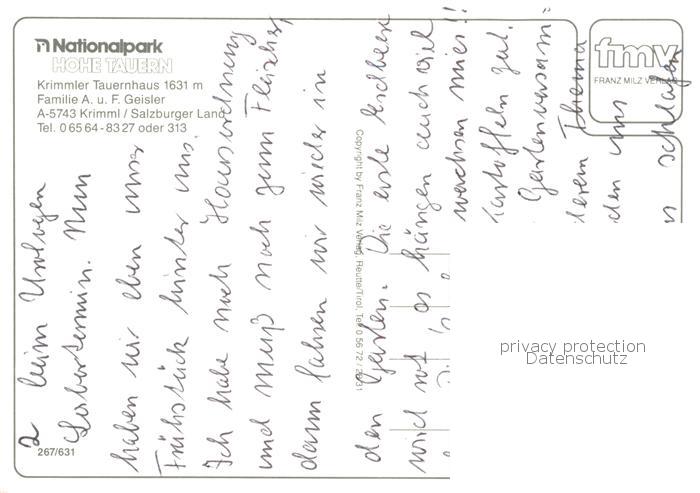 Nationalpark
HOHE TAUERN
Krimmler Tauernhaus 1631 m
Familie A. u. F. Geisler
A-5743 Krimml / Salzburger Land
Tel. 0 65 64 - 83 27 oder 313
fmv
FRANZ MILZ VERLAG
Copyright by Franz Milz Verlag, Reutte/Tirol, Tel. 0 56 72 / 2631
267/631
2 beim Urologen
Labortermin. Nun
haben wir eben unser
Frühstück hinter uns.
Ich habe noch Hausordnung
und muß noch zum Fleischer,
dann fahren wir wieder in
den Garten. Die erste Erdbeere
wird rot es hängen auch viel
wachsen mies!!
Kartoffeln gut.
Gartenversam=
Thema
den uns
schlafen
privacy protection
Datenschutz